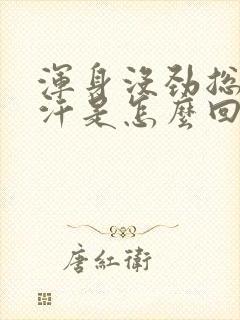 渾身沒勁總
汗是怎麼回
唐紅衛